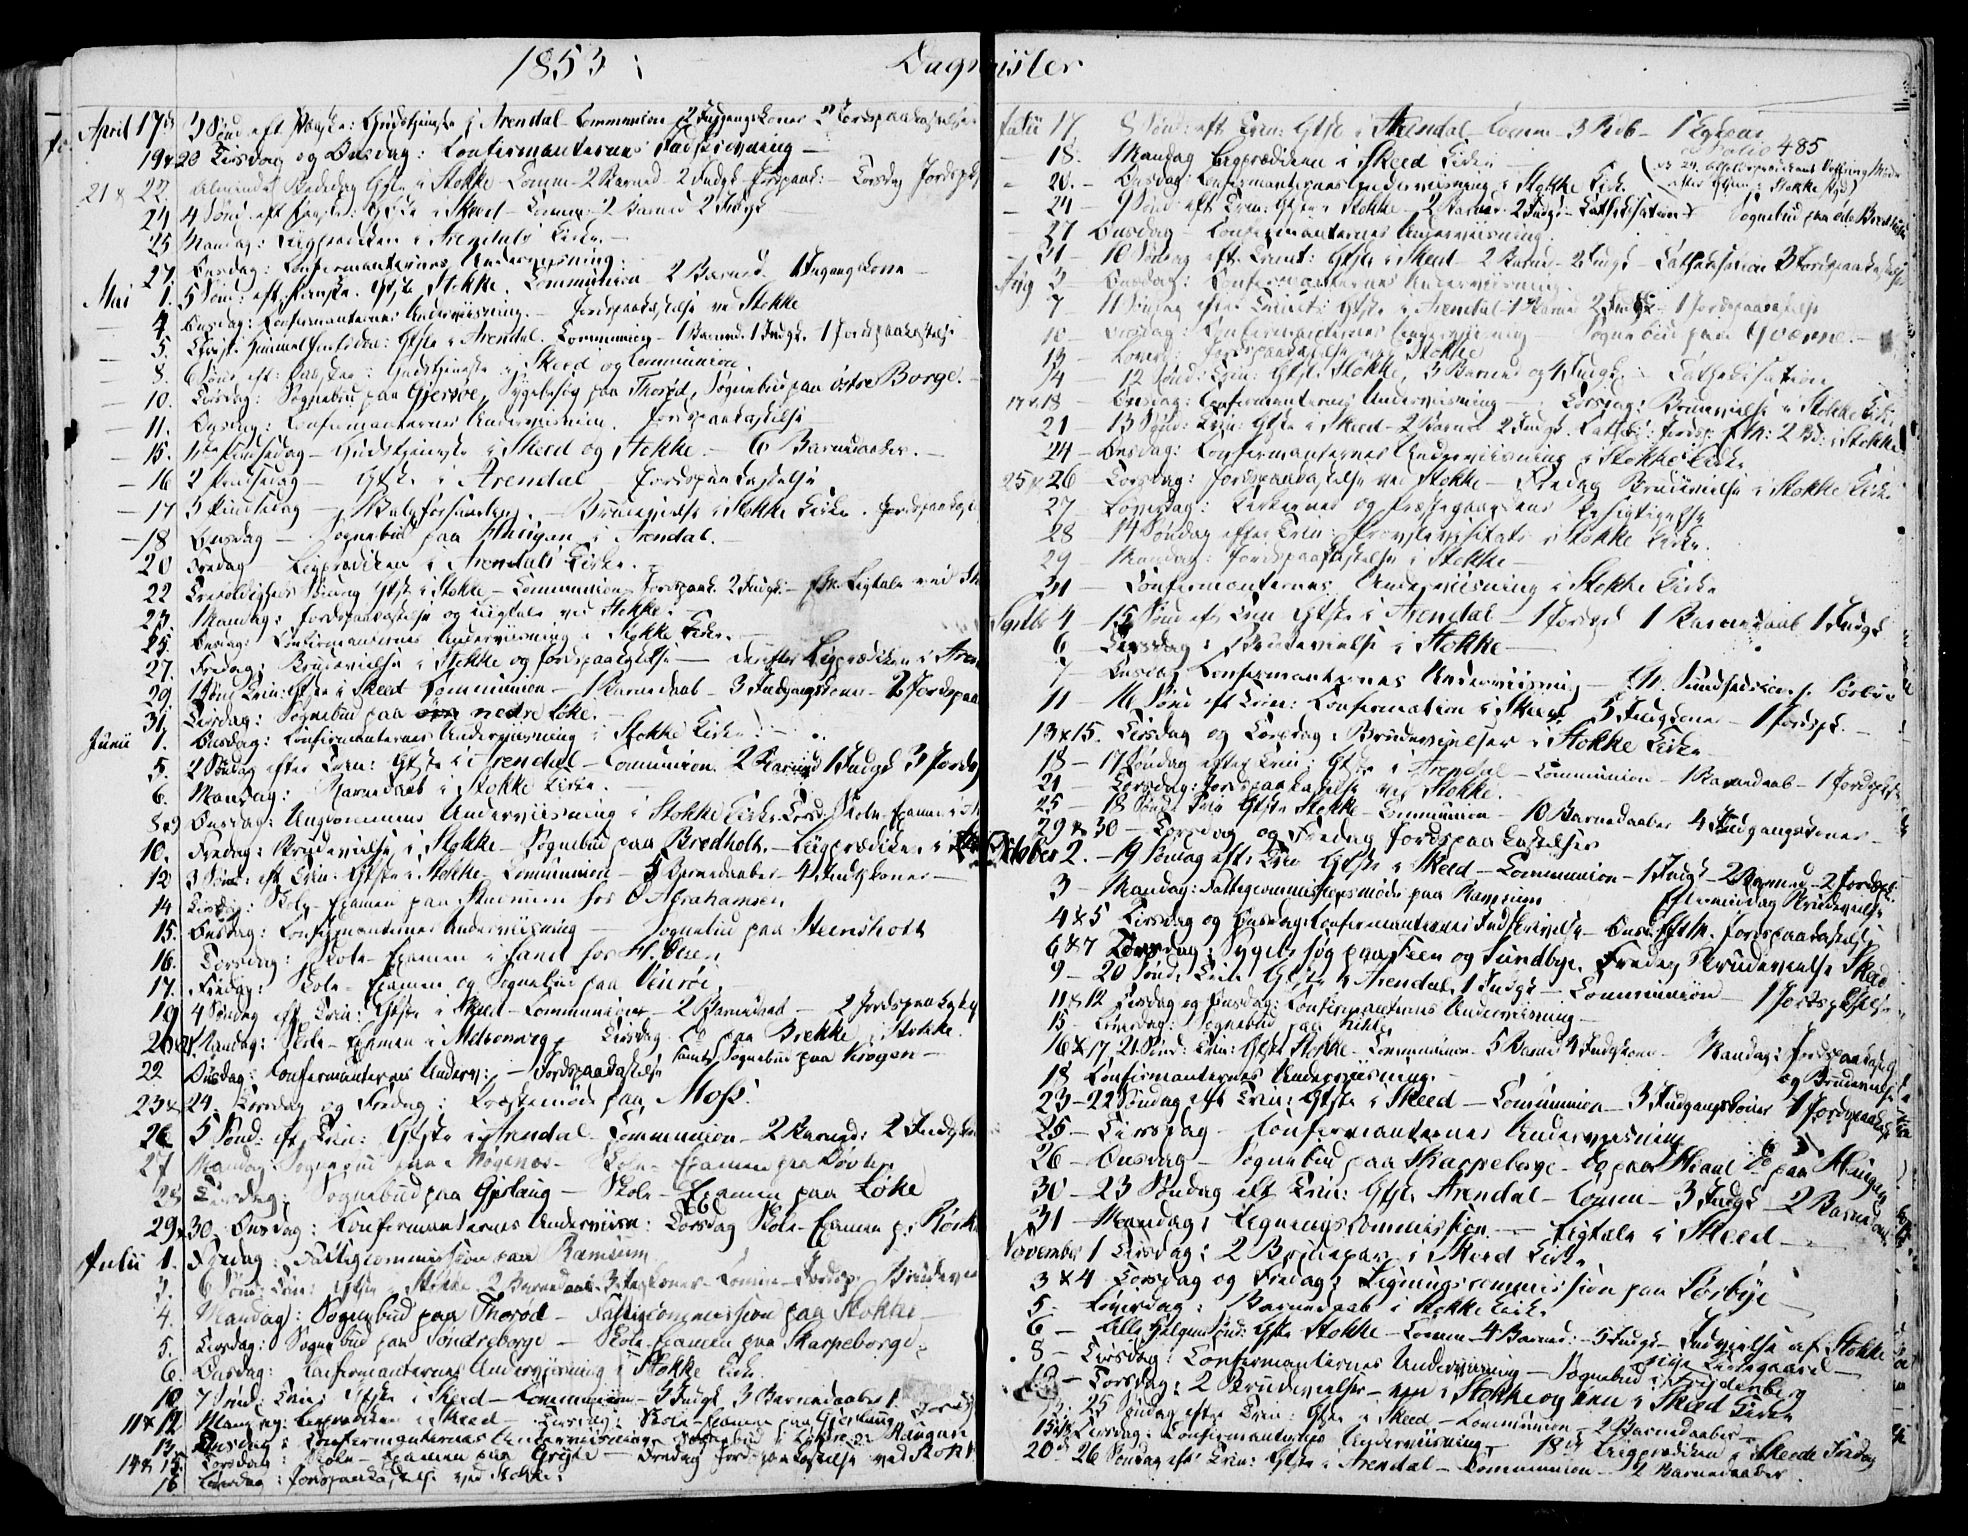 1853 : Dagregister
April 17de 3 Sønd eft Paaske: Gudstjeneste i Arendal - Communion - 2 Indgangskoner 2 Jordspaakastelser
19 & 20 Tirsdag og Onsdag: Confirmanternes Indskrivning -
21 & 22 Almindel Bededag Gtjste i Stokke - Comm - 2 Barned - 2 Indgk - Jordspaak: - Torsdag Jordspk
24 4 Sønd eft Paaske: Gtjste i Skeed - Comm - 2 Barned 2 Indgk
25 Mandag: Liigprædiken i Arendals Kirke. -
27 Onsdag: Confirmanternes Underviisning. -
Mai 1. 5 Sønd: eft Paaske. Gtjste Stokke. Communion - 2 Barned - 1 Ingangskone -
4. Onsdag: Confirmanternes Underviisning. - Jordspaakastelse ved Stokke
5. Christi Himmelfartsdag: Gtjste i Arendal. Communion - 1 Barned. 1 Indgk. - 1 Jordspaakastelse
8. 6 Sønd eft: Paaske: Gudstjeneste i Skeed og Communion.
10. Tirsdag: Sognebud paa Gjersøe, Sygebesøg paa Thorød, Sognebud paa østre Borge. -
11. Onsdag: Confirmanternes Underviisning. Jordspaakastelse
15. 1ste Pindsedag - Gudstjeneste i Skeed og Stokke. - 6 Barnedaaber. -
16 2 Pindsedag - Gtjste i Arendal Jordspaakastelse
17 3 Pindsedag - Valgforsamling. - Brudevielse i Stokke Kirke. Jordspaakast
18 Onsdag - Sognebud paa Haugen i Arendal. -
20 Fredag - Liigprædiken i Arendals Kirke. -
22 Treenigheds Søndag Gtjste i Stokke - Communion - Jordspaak. 2 Indgk: - Liigtale ved
23. Mandag: Jordspaakastelse og Liigtale ved Stokke:
25. Onsdag: Confirmanternes Underviisning i Stokke Kirke. -
27. Fredag: Brudevielse i Stokke og Jordspaakastelse - derefter Liigprædiken i Aren
29. 1 Sønd Trin: Gtjste i Skeed Communion - 1 Barnedaab - 3 Indgangskoner - 2 Jordspaa
31. Tirsdag: Sognebud paa nedre Løke. -
Junii 1. Onsdag: Confirmanternes Underviisning i Stokke Kirke. -
5. 2 Søndag efter Trin: Gtjste i Arendal - Communion 2 Barned 1 Indgk 3 Jordsp
6. Mandag: Barnedaab i Stokke Kirke. -
8 & 9 Onsdag: Ungdommens Underviisning i Stokke Kirke Torsd. Skole-Examen i
10. Fredag: Brudevielse i Stokke - Sognebud paa Bredholt. - Liigprædiken i
12 3 Sønd: eft Trin: Gtjste i Stokke - Communion - 5 Barnedaaber - 4 Indgkoner -
14. Tirsdag: Skole-Examen paa hos O Abrahamsen
15. Onsdag: Confirmanternes Underviisning - Sognebud paa Steensholt
16. Torsdag: Skole-Examen i Sand hos H. Olsen
17. Fredag: Skole-Examen og Sognebud paa Veierøe.
19 4 Søndag eft Trin: Gtjste i Skeed - Communion - 2 Barnedaab - 2 Jordspaakast
20 & 21. Mandag: Skole-Examen i Melsomvig, Tirsdag - do paa Brekke i Stokke.
22 Onsdag: Confirmanternes Underv: - Jordspaakastelse samt Sognebud paa Krogen -
23 & 24. Torsdag og Fredag: Præstemøde paa Moss.
26 5 Sønd: eft Trin: Gtjste i Arendal - Communion - 2 Barned: 2 Indgkon
27 Mandag: Sognebud paa Bøgenes - Skole-Examen paa
28 Tirsdag: Sognebud paa Gjelaug - Skole-Examen paa Løke
29 & 30. Onsdag: Confirmanternes Underviisn: Torsdag Skole-Examen p.
Julii 1. Fredag: Fattigcommission paa Ramsum
3. 6 Sønd: Trin: Gtjste i Stokke. 2 Barnedaab. 3 Indgkoner - Comm - Jordsp, Brudevi
4. Mandag: Sognebud paa Thorød - Fattigcommission paa Stokke -
5. Tirsdag: Sognebud paa Søndreborge - Skole-Examen paa Skarpeborge:
6. Onsdag: Confirmanternes Underviisning i Stokke Kirke.
10. 7 Sønd: Trin: Gtjste i Skeed - Communion - 3 Indgk 3 Barnedaaber. Jordsp
11 & 12 Mandag: Liigprædiken i Skeed - Tirsdag: Skole-Examen paa Gjelaug
13. Onsdag: Confirmanternes Underviisning Sognebud i Haugan
14 & 15 Torsdag: Skole-Examen paa - Fredag Jordspaakastelse ved Stokk
16 Løverdag: Jordspaakastelse ved Stokke:
Julii 17. 8 Sønd: eft Trin: Gtjste i Arendal - Comm - 3 Bdb - 1 Egtevie
18. Mandag Liigprædiken i Skeed Kirke - Folio 485
20. - Onsdag: Confirmanternes Underviisning i Stokke Kirke
efter Gtjsten i Stokke
24 - 9 Sønd: eft Trin: Gtjste i Stokke - 2 Barned. 2 Indgk - Cathechisation Sognebud paa Bredholt
27 Onsdag - Confirmanternes Underviisning.
31 - 10 Søndag eft Trinit: Gtjste i Skeed - 2 Barned - 2 Indgk - Cathechisation 3 Jordspaakastelser
Aug 3 - Onsdag: Confirmanternes Underviisning.
7 11 Søndag efter Trinit: Gtjste i Arendal - 1 Barned 2 Indgk - 1 Jordspaakastelse
10 - Onsdag: Confirmanternes Underviisning - Sognebud paa Qværne. -
13 - Løverd: Jordspaakastelse ved Stokke
14 - 12 Sønd: Trin: Gtjste Stokke, 3 Barned og 4 Indgk. - Cathechisation
17 & 18 - Onsdag: Confirmanternes Underviisning - Torsdag: Brudevielse i Stokke Kirke.
21 - 13 Sønd: Trin: Gtjste i Skeed - 2 Barned 2 Indgk. Cathech: Jordsp. Eftm: 2 Bd: i Stokke
24 - Onsdag: Confirmanternes Underviisning i Stokke Kirke
25 & 26 - Torsdag: Jordspaakastelse ved Stokke - Fredag Brudevielse i Stokke Kirke
27 - Løverdag: Kirkernes og Præstegaardens Besigtigelse
28 - 14 Søndag efter Trin: Provstevisitats i Stokke Kirke.
29 - Mandag: Jordspaakastelse i Stokke -
31 - Confirmanternes Underviisning i Stokke Kirke
Septbr 4 - 15 Sønd eft Trin Gtjste i Arendal - 1 Jordspk 1 Barnedaab 1 Indgk
6 Tirsdag: Brudevielse i Stokke -
7 - Onsdag Confirmanternes Underviisning - Eftm. Sundhedscom. p. Sørbye
11 - 16 Sønd eft Trin: Confirmation i Skeed. 5 Indgkoner - 1 Jordspk. -
13 & 15. Tirsdag og Torsdag: Brudevielser i Stokke Kirke
18 - 17 Søndag efter Trin: Gtjste i Arendal - Communion - 1 Barnedaab - 1 Jordspkst
21 - Onsdag: Jordspaakastelse ved Stokke.
25 - 18 Sønd Trin Gtjste Stokke - Communion - 10 Barnedaaber 4 Indgangskoner -
29 & 30 - Torsdag og Fredag Jordspaakastelser
October 2. - 19 Søndag eft Trin Gtjste i Skeed - Communion - 1 Indgk - 2 Barned - 2 Jordspk.
3 - Mandag: Fattigcommissionsmøde paa Ramsum Eftermiddag Brudevielse
4 & 5 Tirsdag og Onsdag: Confirmanternes Indskrivelse - Onsd. Eftm. Jordspaakastelse
6 & 7 Torsdag: Sygebesøg paa Feen og Sundbye. Fredag Brudevielse Skeed
9 - 20 Sønd: Trin Gtjste i Arendal, 1 Indgk - Communion - 1 Jordspkstelse
11 & 12 Tirsdag og Onsdag: Confirmanternes Underviisning -
15 - Løverdag: Sognebud paa
16 & 17 21 Sønd: Trin: Gtjste Stokke - Communion - 5 Barned 4 Indgkoner - Mandag: Jordspaakastelse og Brudevielse
18 Confirmanternes Underviisning. -
23 - 22 Søndag eft Trin: Gtjste i Skeed - Communion - 3 Indgangskoner 1 Jordspaakast
25 - Tirsdag - Confirmanternes Underviisning
26 - Onsdag - Sognebud paa Skarpeborge - Do paa Do paa Haugen
30 - 23 Søndag eft Trin: Gtjste Arendal - Comm - 3 Indgk - 2 Barnedaab
31 - Mandag: Ligningscommission - Liigtale i Skeed -
November 1 Tirsdag: 2 Brudepar i Skeed Kirke
3 & 4 Torsdag og Fredag: Ligningscommission paa Sørbye
5 - Løverdag: Barnedaab i Stokke Kirke
6 - Alle Helgen Sønd: Gtjste Stokke - Comm - 4 Barned: - 5 Indgk - Indvielse af Stokke nye Kirkegaard -
8 - Tirsdag: Confirmanternes Underviisning - Sognebud i Frydenberg
10 - Torsdag: 2 Brudevielser - een i Stokke og een i Skeed Kirke
13: 25 Søndag efter Trin: Gtjste i Skeed - Communion - 2 Barnedaaber
15 Tirsdag: Confirmanternes Underviisning - 18de Liigprædiken i Skeede Fredag
20de 26 Søndag eft Trin: Gtjste i Arendal - Communion - 2 Barnedaaber.